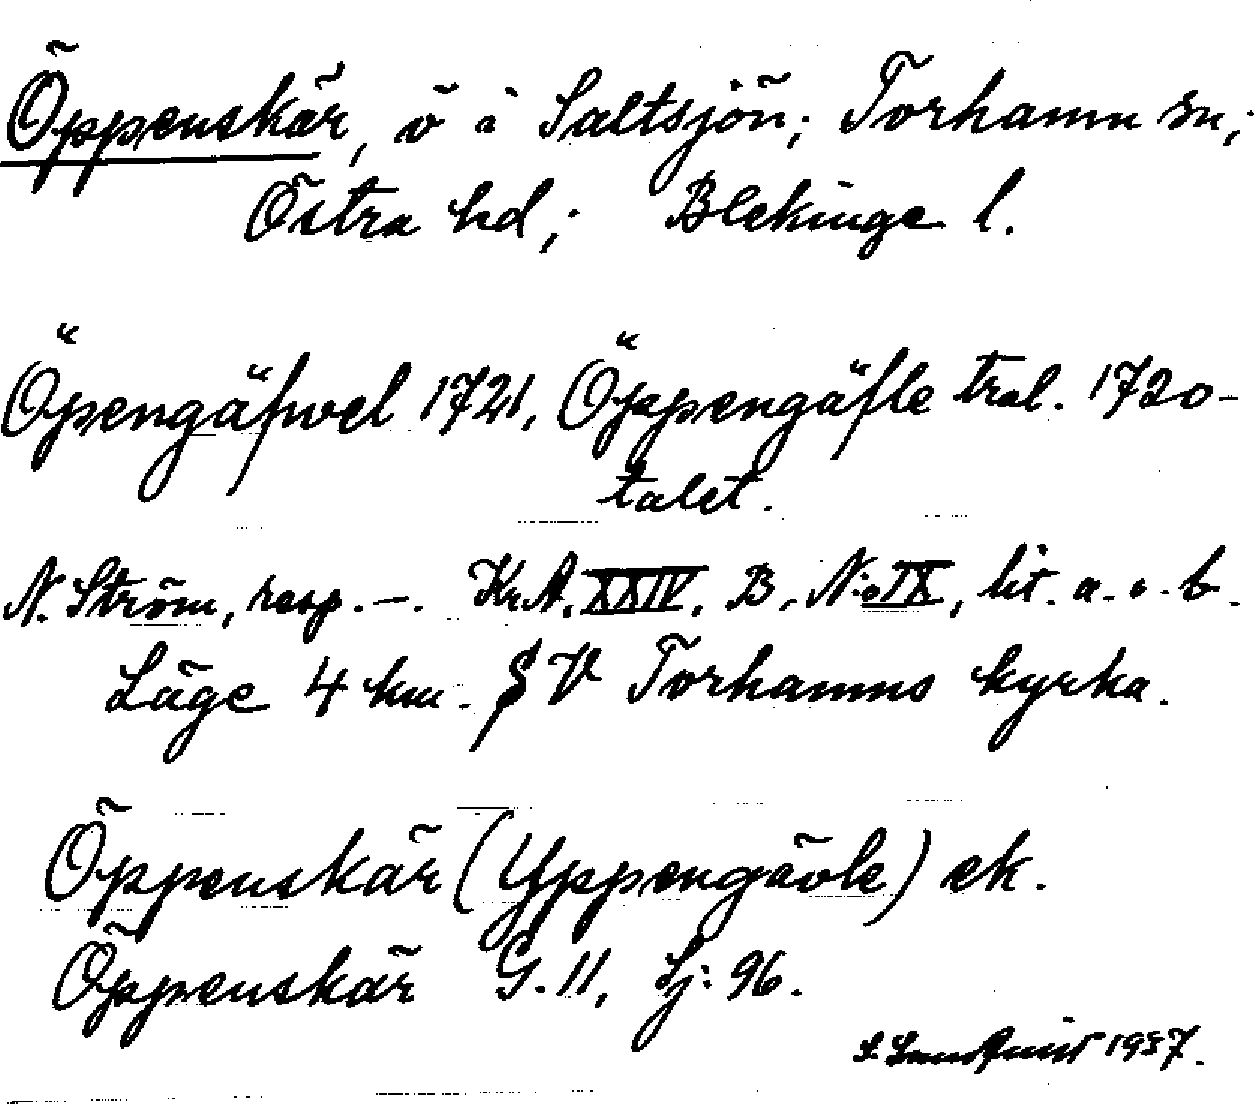 Öppenskär, ö i Saltsjön; Torhamn sn;
Östra hd; Blekinge l.
Öpengäfwel 1721, Öppengäfle tral. 1720-
talet.
N. Ström, resp. —. KrA. XXIV. B, No IX, lit. a. o. b.
Läge 4 km. V Torhamns kyrka.
Öppenskär (Yppengävle) ek.
Öppenskär G. 11, Sj: 96.
S. Lundquist 1937.